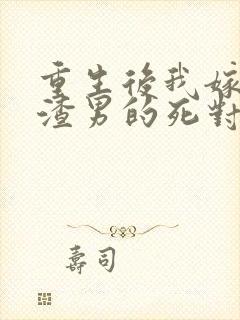 重生後我嫁
渣男的死對
壽司